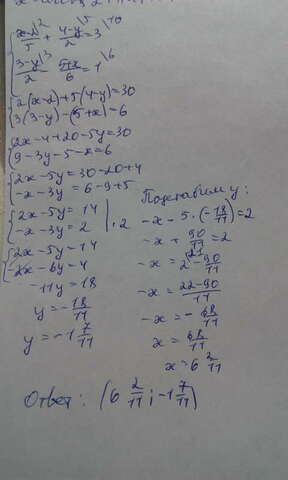 { x-2\2/5 + 4-y\5/2 = 3\10
3-y\3/2 - 5+x/6 = 1\6
{ 2(x-2)+5(4-y)=30
3(3-y)-(5+x)=6
{ 2x-4+20-5y=30
9-3y-5-x=6
{ 2x-5y=30-20+4
-x-3y=6-9+5
{ 2x-5y=14
-x-3y=2 |·2
{ 2x-5y=14
-2x-6y=4
-11y=18
y=-18/11
y=-1 7/11
Подставим y:
-x-5·(-18/11)=2
-x+90/11=2
-x=2\11-90/11
-x=22-90/11
-x=-68/11
x=68/11
x=6 2/11
Ответ: (6 2/11; -1 7/11)